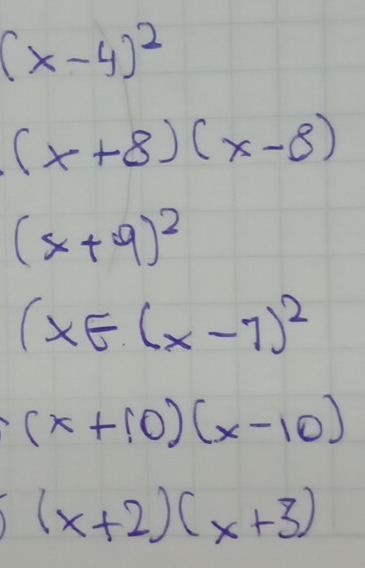 (x-4)²
.(x+8)(x-8)
(x+9)²
(x (x-7)²
(x+10)(x-10)
) (x+2)(x+3)